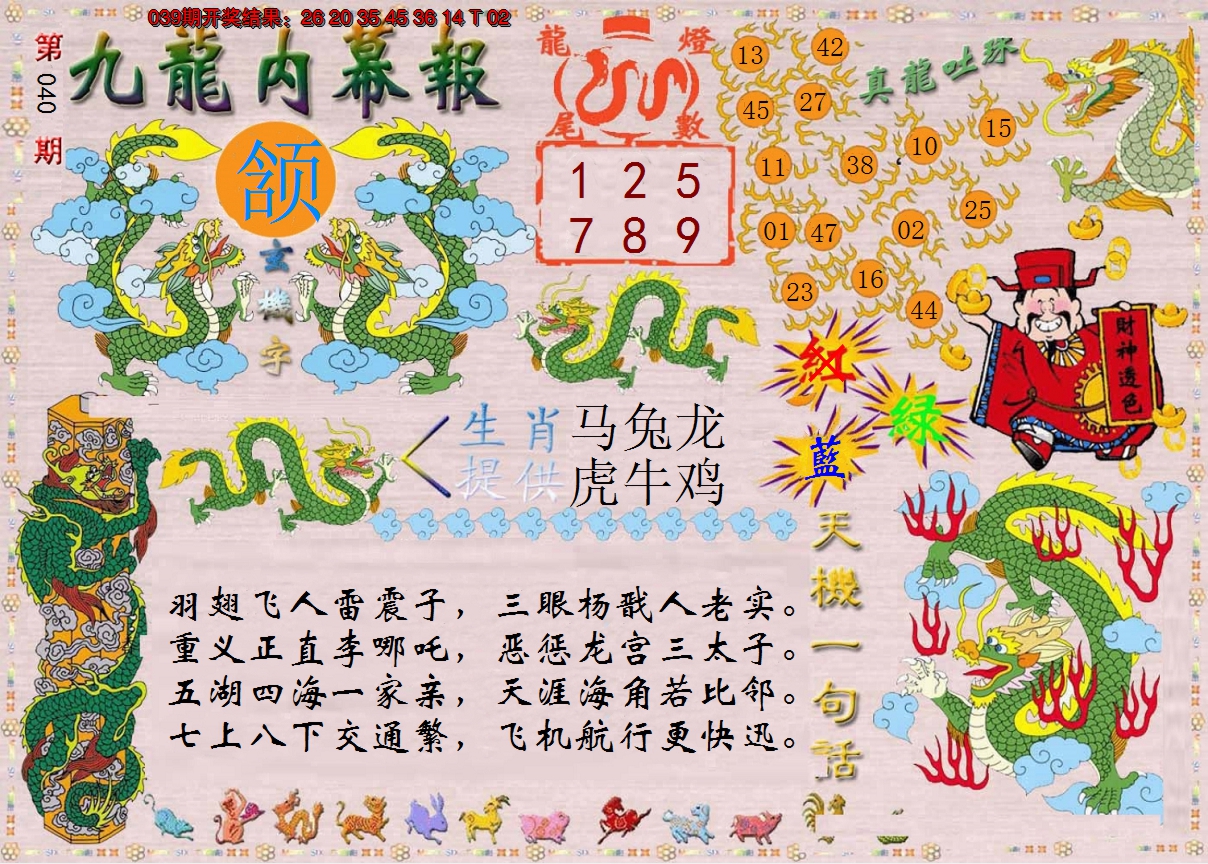 039期开奖结果：26 20 35 45 36 14 T 02
第040期
九龍内幕報
颔
玄機字
龍燈
尾數
1 2 5
7 8 9
真龍吐珠
13 42
45 27
11 38 10 15
01 47 02 25
23 16 44
財神透色
紅
綠
藍
生肖提供
马兔龙
虎牛鸡
天機一句话
羽翅飞人雷震子，三眼杨戬人老实。
重义正直李哪吒，恶惩龙宫三太子。
五湖四海一家亲，天涯海角若比邻。
七上八下交通繁，飞机航行更快迅。